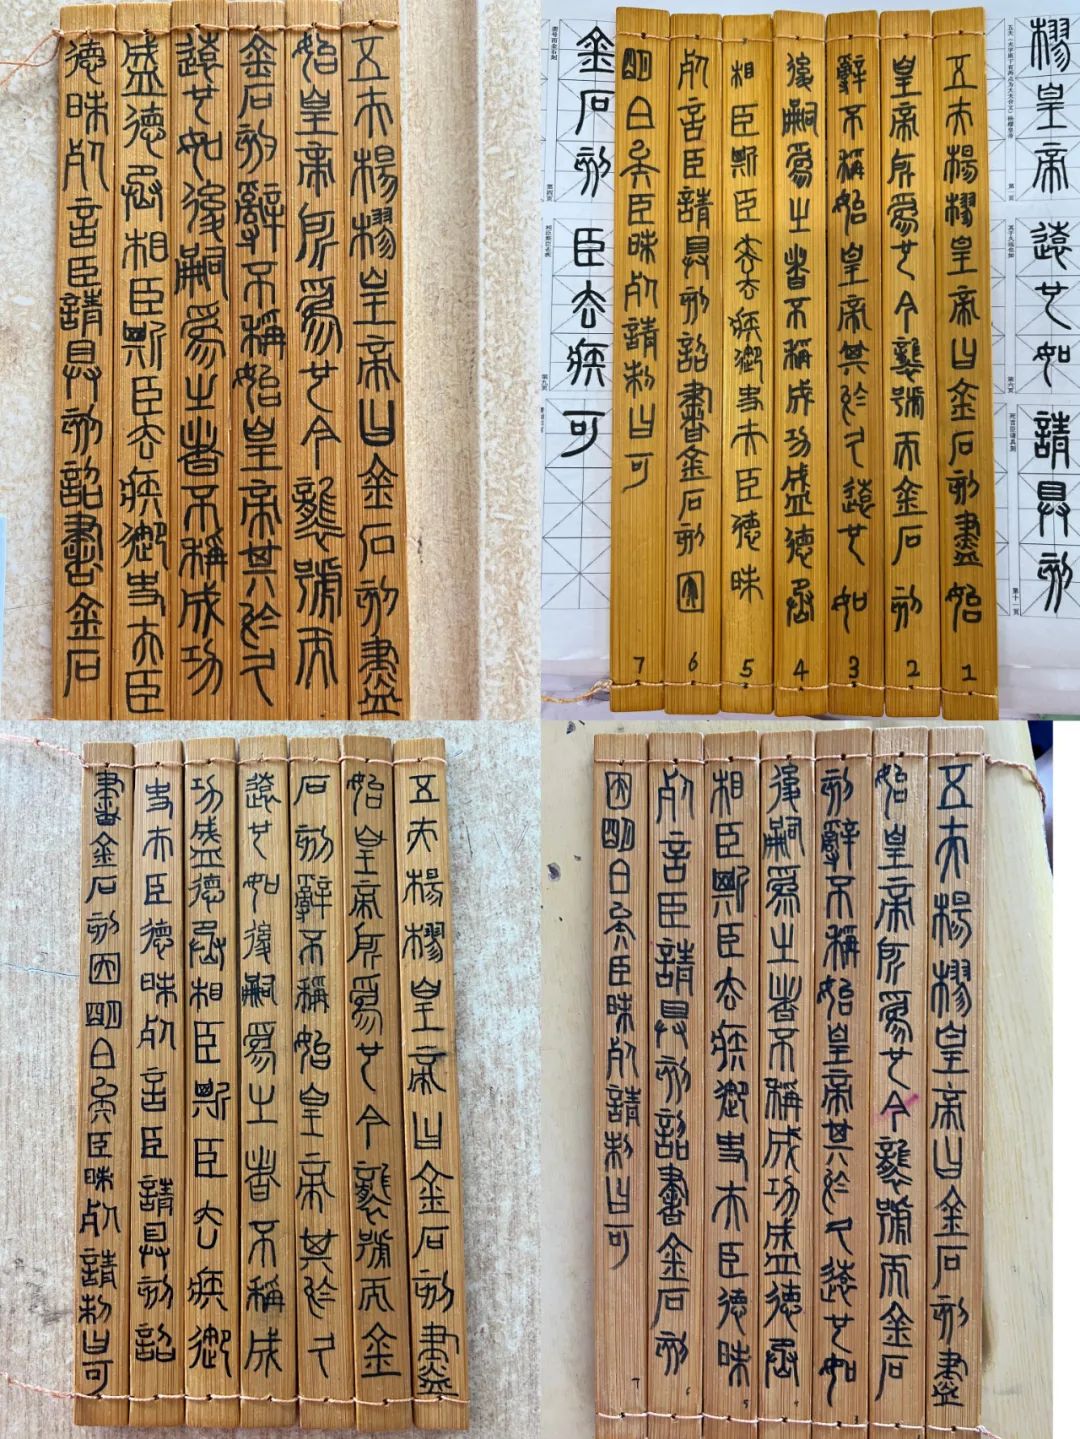 五夫楊樛皇帝曰金石刻盡
始皇帝所為也今襲號而
金石刻辭不稱始皇帝其於久
遠也如後嗣為之者不稱成功
盛德丞相臣斯臣去疾御史夫臣
德昧死言臣請具刻詔書金石
樛皇帝
遠也如
請具刻
五夫楊樛皇帝曰金石刻盡始
1
皇帝所為也今襲號而金石刻
2
辭不稱始皇帝其於久遠也如
3
後嗣為之者不稱成功盛德丞
4
相臣斯臣去去疾御史夫臣德昧
5
死言臣請具刻詔書金石刻因
6
明白矣臣昧死請制曰可
7
金石刻
臣去疾
可
五夫楊樛皇帝曰金石刻盡
始皇帝所為也今襲號而金
石刻辭不稱始皇帝其於久
遠也如後嗣為之者不稱成
功盛德丞相臣斯臣去疾御
史夫臣德昧死言臣請具刻詔
書金石刻因明白矣臣昧死請制曰可
五夫楊樛皇帝曰金石刻盡
始皇帝所為也今襲號而金石
刻辭不稱始皇帝其於久遠也如
3
後嗣為之者不稱成功盛德丞
4
相臣斯臣去疾御史夫臣德昧
5
死言臣請具刻詔書金石刻
6
因明白矣臣昧死請制曰可
7